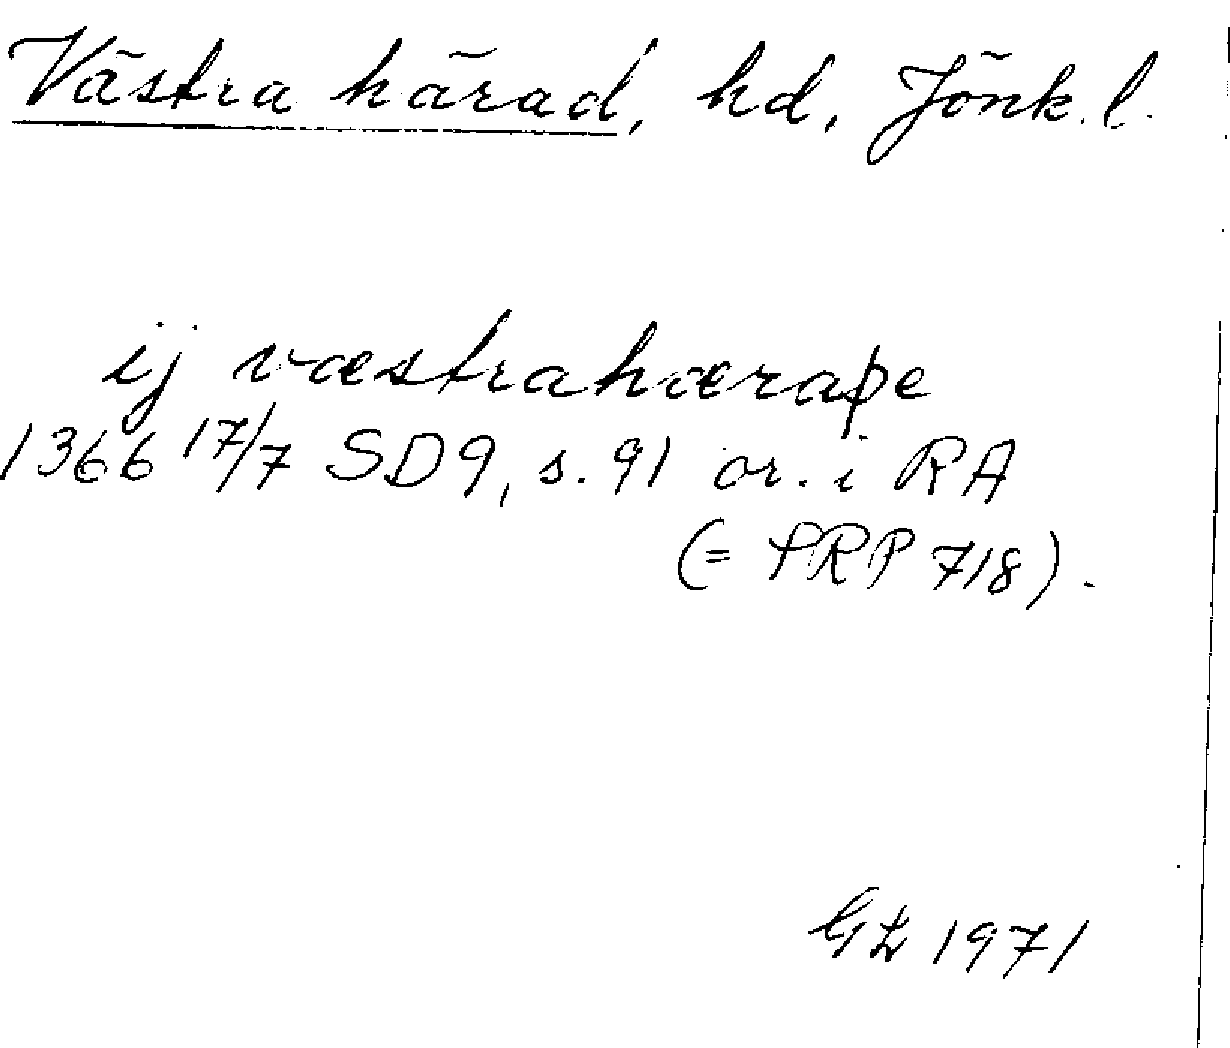 Västra härad, hd, Jönk. l.
ij væstrahæraþe
1366 17/7 SD9, s. 91 or. i RA
(= SRP 718).
GL 1971